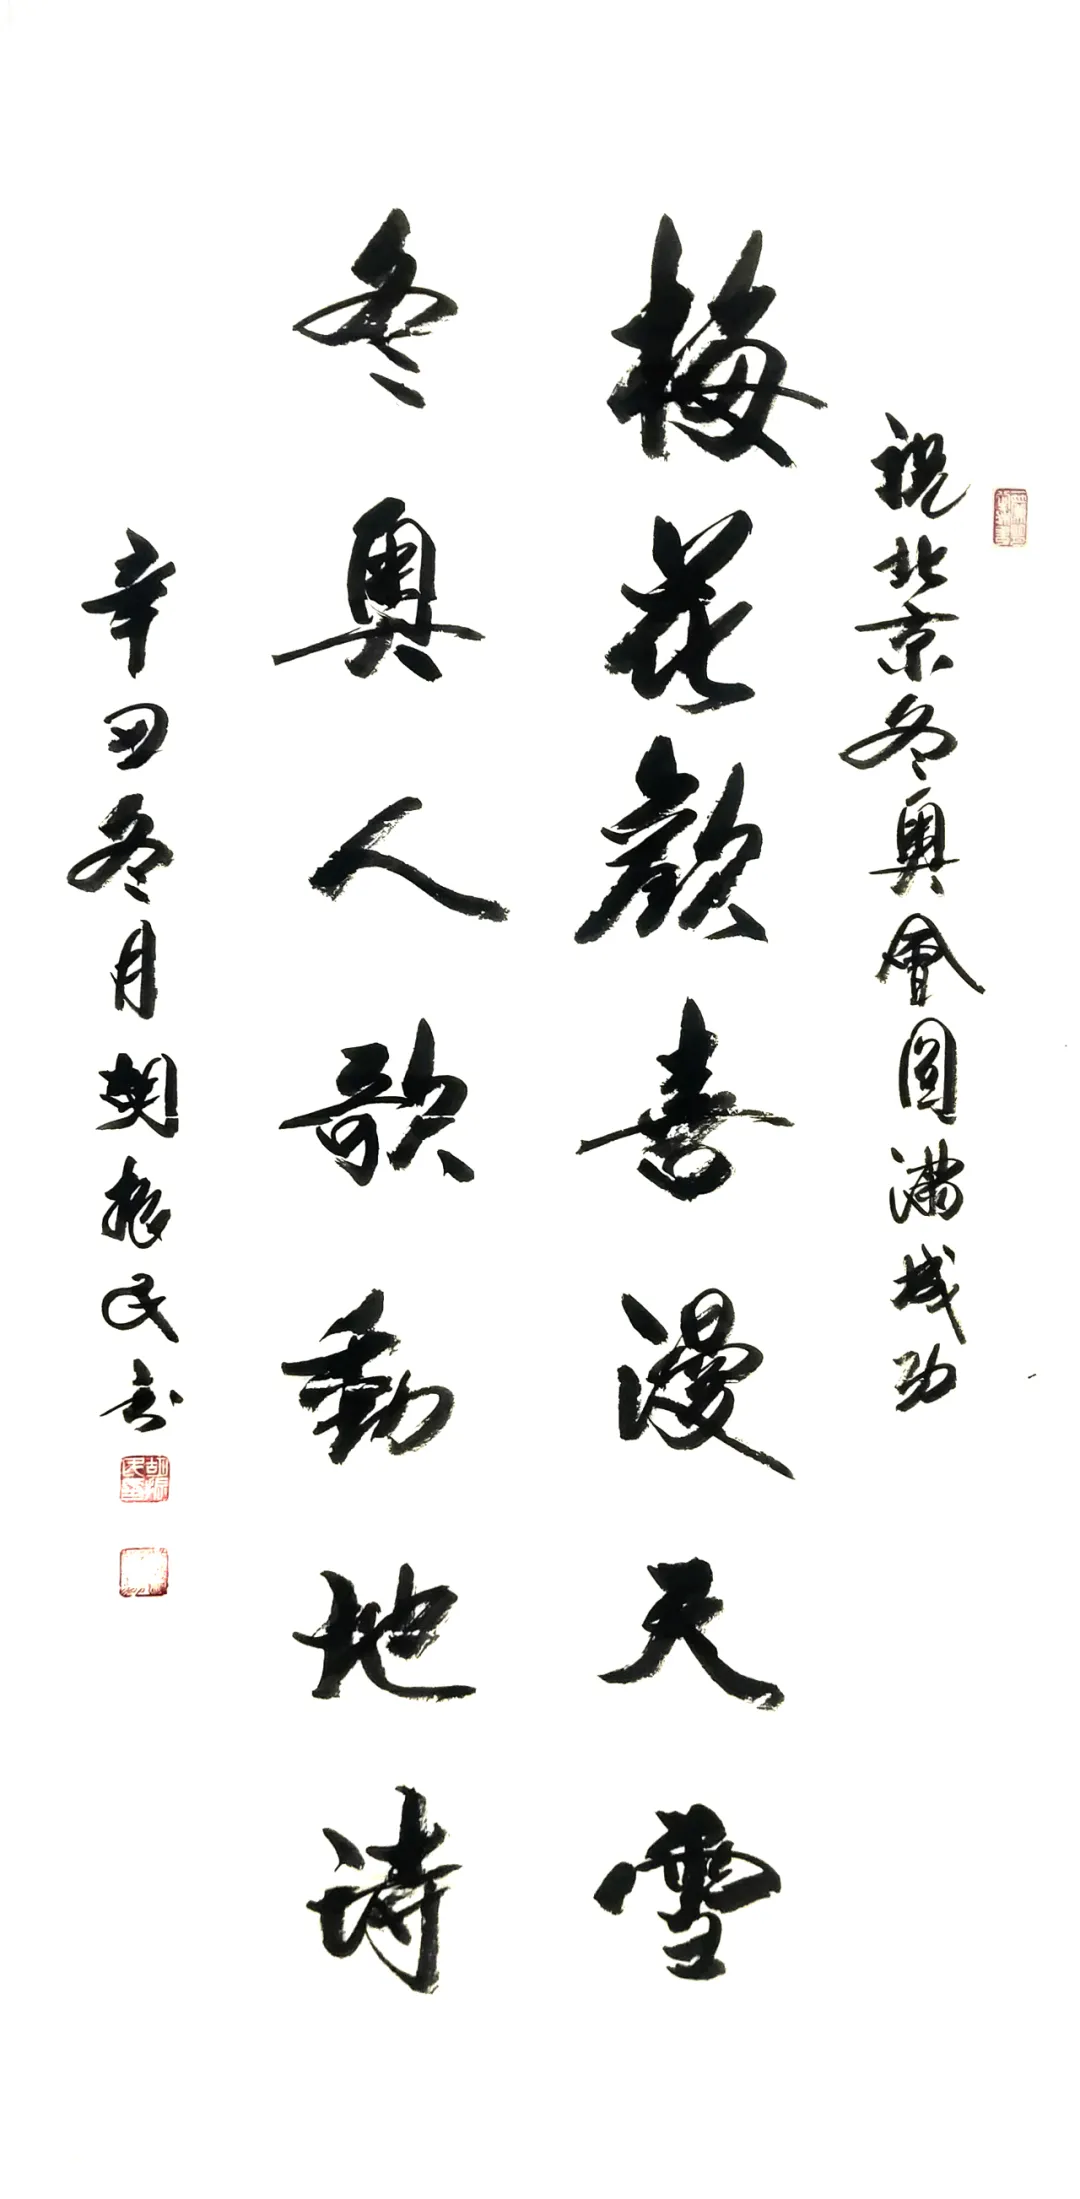 祝北京冬奥會圆满成功
梅花歡喜漫天雪
冬奥人歌動地诗
辛丑冬月胡振民书